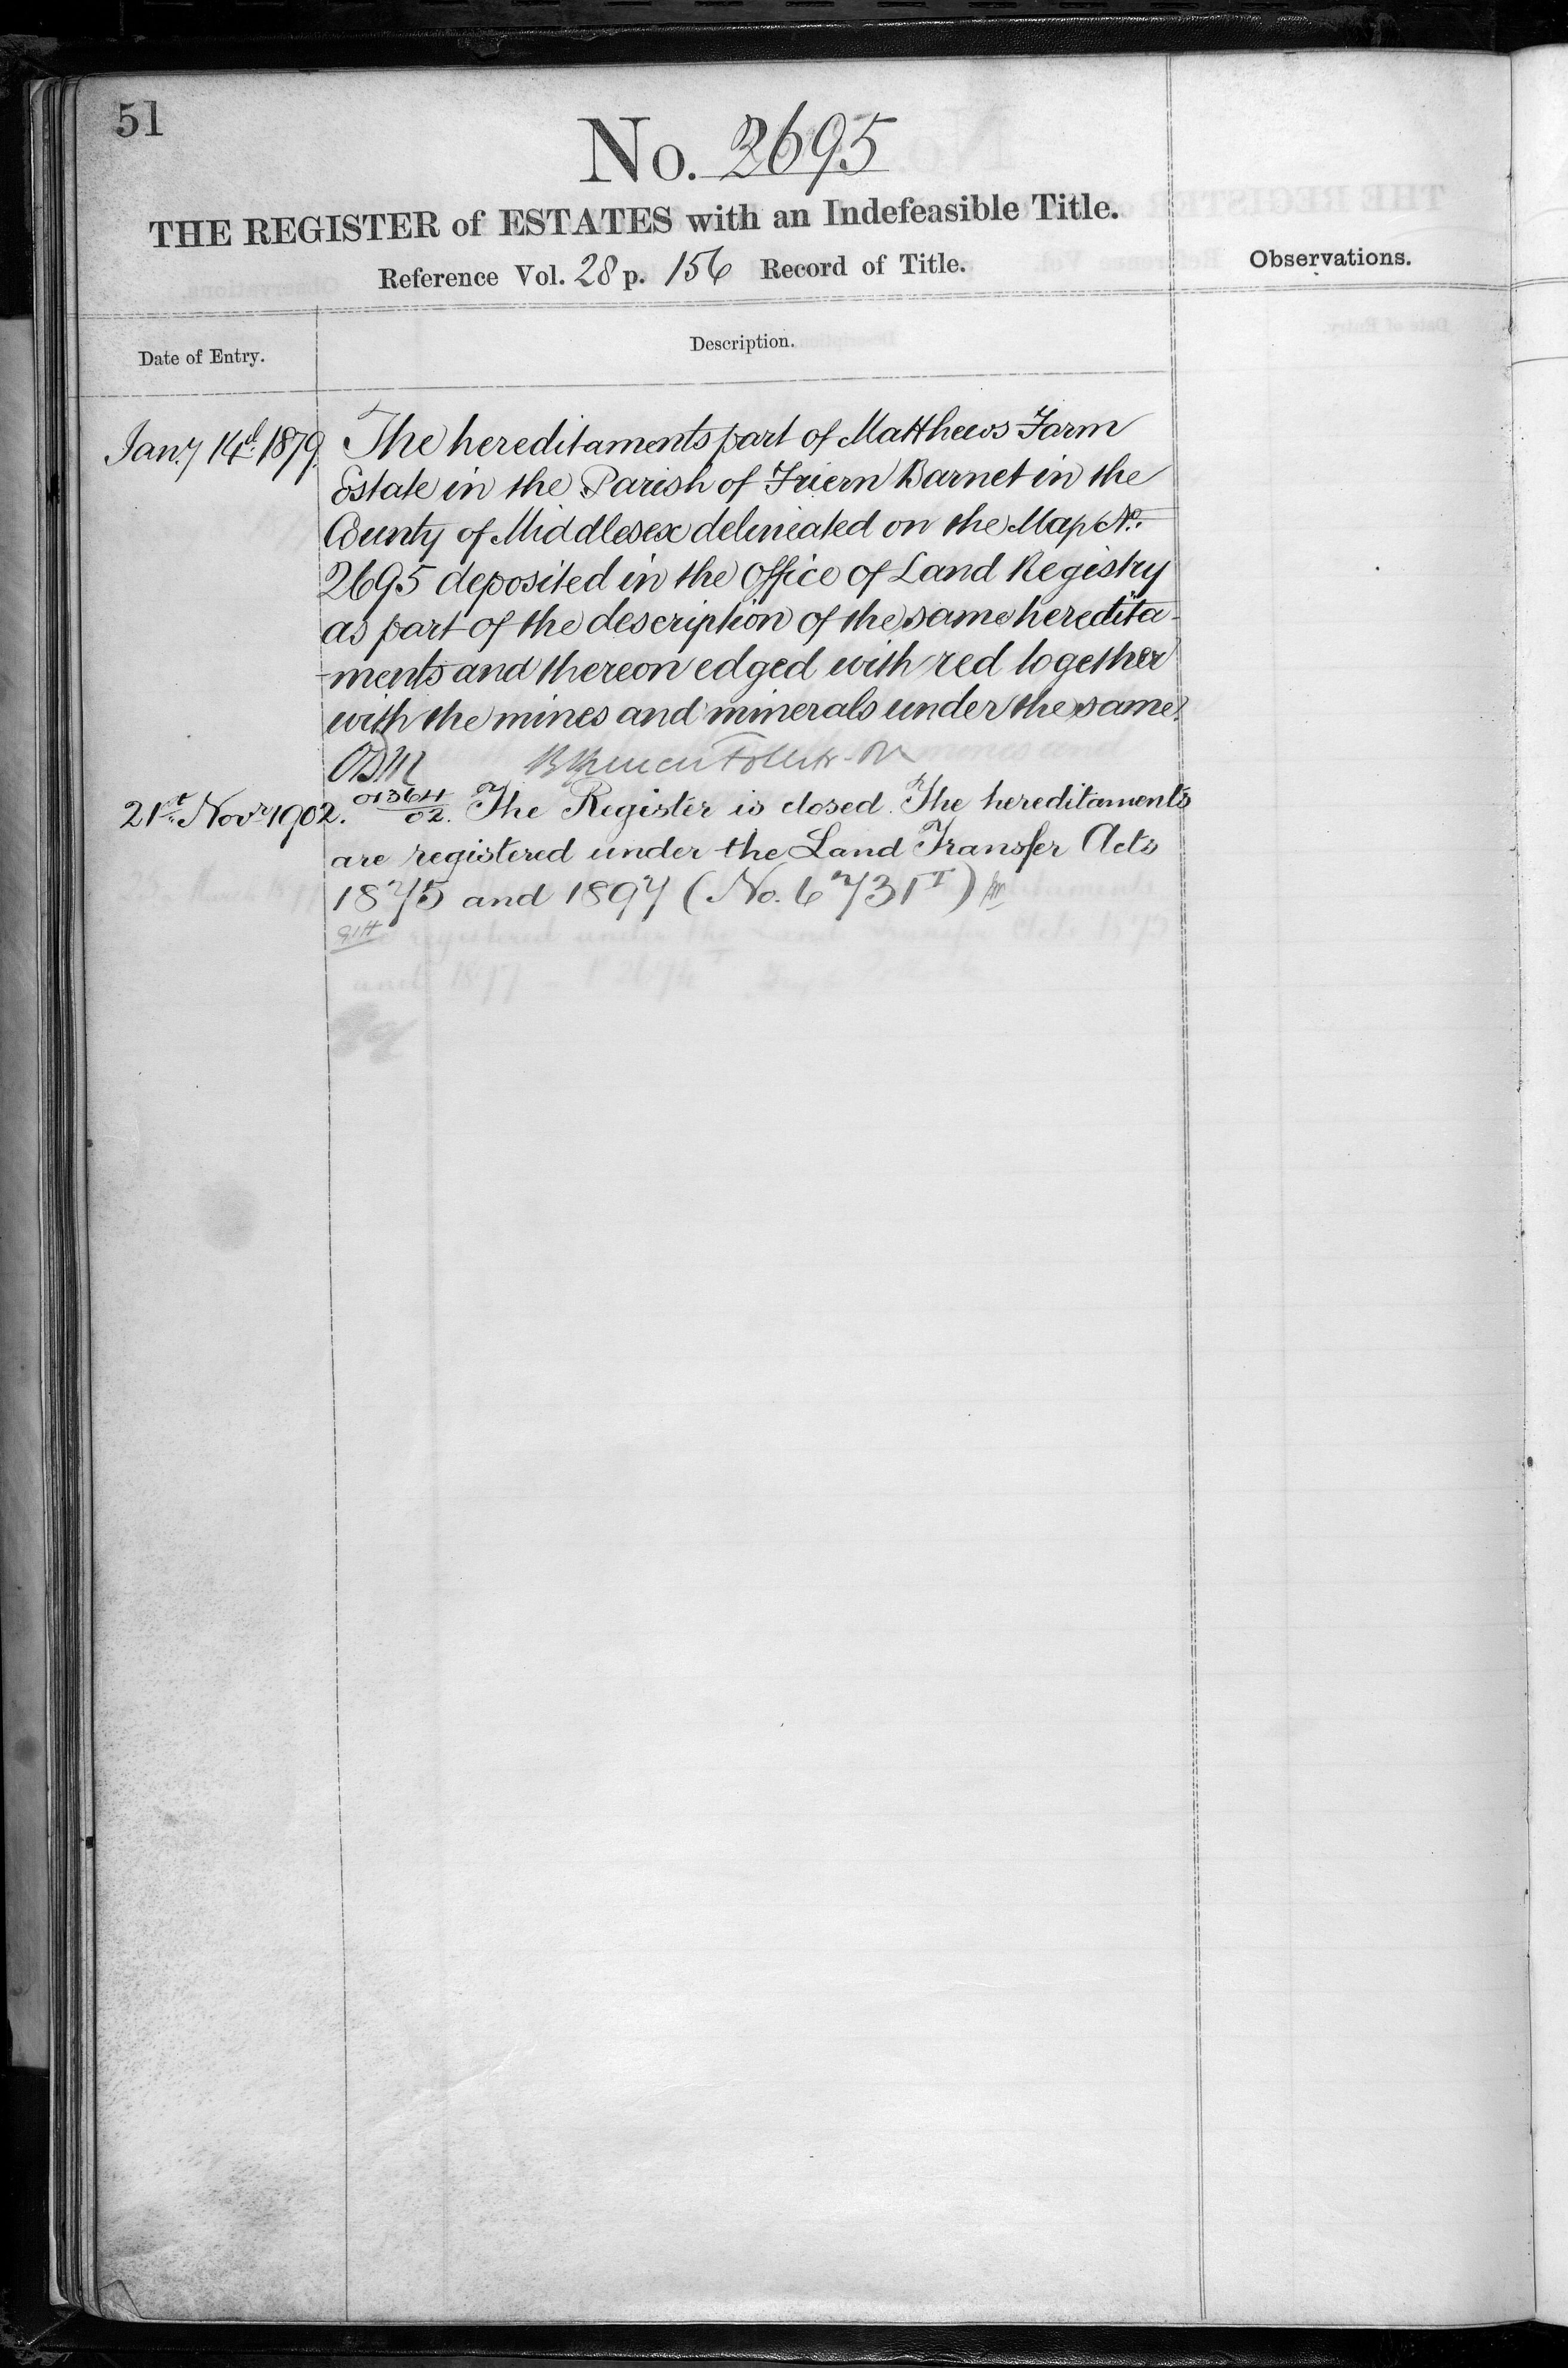 51
No. 2695
THE REGISTER of ESTATES with an Indefeasible Title.
Reference Vol. 28 p. 156 Record of Title.
Observations.
Date of Entry.
Description.
Jany 14th 1879. The hereditaments part of Matthews Farm
Estate in the Parish of Friern Barnet in the
County of Middlesex delineated on the Map No.
2695 deposited in the Office of Land Registry
as part of the description of the same heredita-
-ments and thereon edged with red together
with the mines and minerals under the same.
21st Novr 1902. 01364/02. The Register is closed. The hereditaments
are registered under the Land Transfer Acts
1875 and 1897 (No. 6731 I)